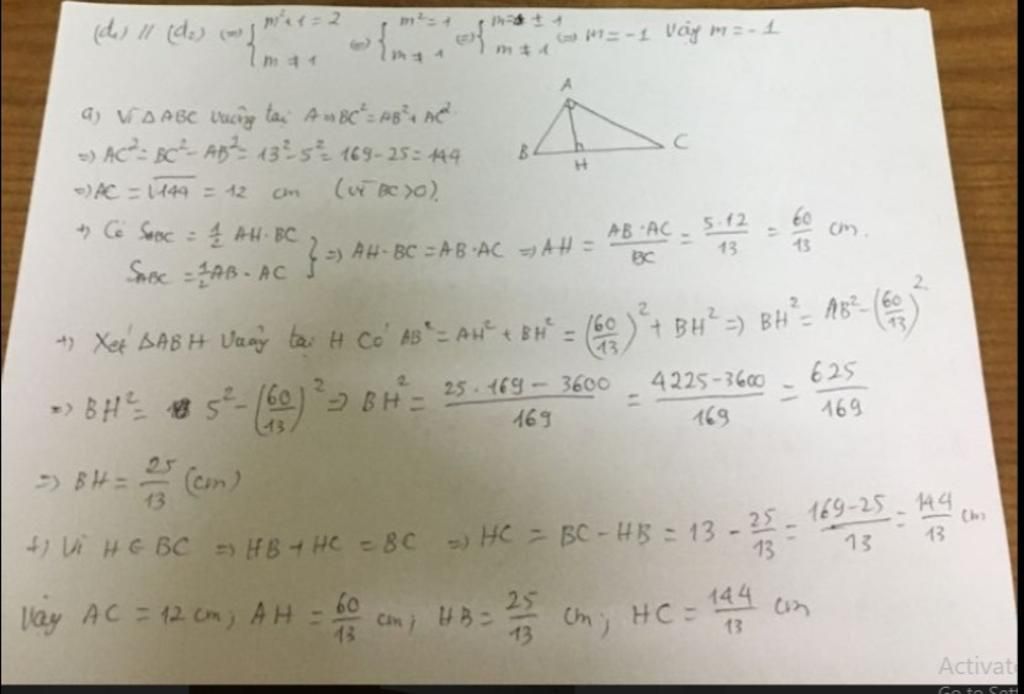 (d₁) // (d₂) (=) { m²+1 = 2 m ≠ 1 (=) { m² = 1 m ≠ 1 (=) { m = ± 1 m ≠ 1 (=) m = -1 Vậy m = -1
A
B H C
a) Vì ΔABC vuông tại A => BC² = AB² + AC²
=) AC² = BC² - AB² = 13² - 5² = 169 - 25 = 144
=) AC = √144 = 12 cm (vì BC > 0).
+) Có S_ABC = 1/2 AH · BC
S_ABC = 1/2 AB · AC } =) AH · BC = AB · AC =) AH = AB · AC / BC = 5 · 12 / 13 = 60/13 cm.
+) Xét ΔABH vuông tại H Có AB² = AH² + BH² = (60/13)² + BH² =) BH² = AB² - (60/13)²
=) BH² = 5² - (60/13)² =) BH² = 25 . 169 - 3600 / 169 = 4225 - 3600 / 169 = 625 / 169
=) BH = 25/13 (cm)
+) Vì H ∈ BC =) HB + HC = BC =) HC = BC - HB = 13 - 25/13 = 169 - 25 / 13 = 144/13 cm
Vậy AC = 12 cm; AH = 60/13 cm; HB = 25/13 cm; HC = 144/13 cm